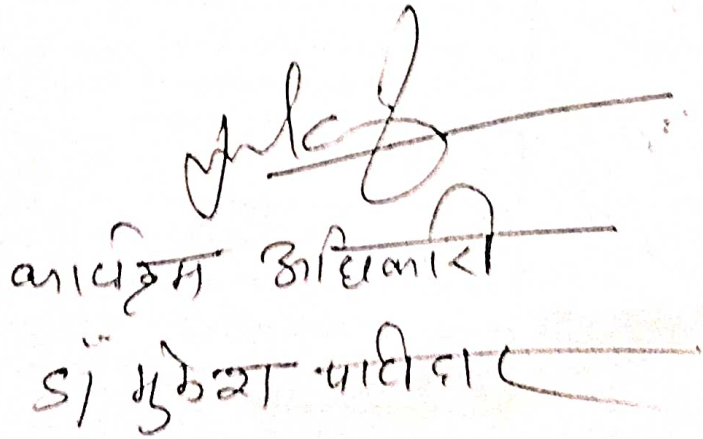 कार्यक्रम अधिकारी
डॉ मुकेश पाटीदार